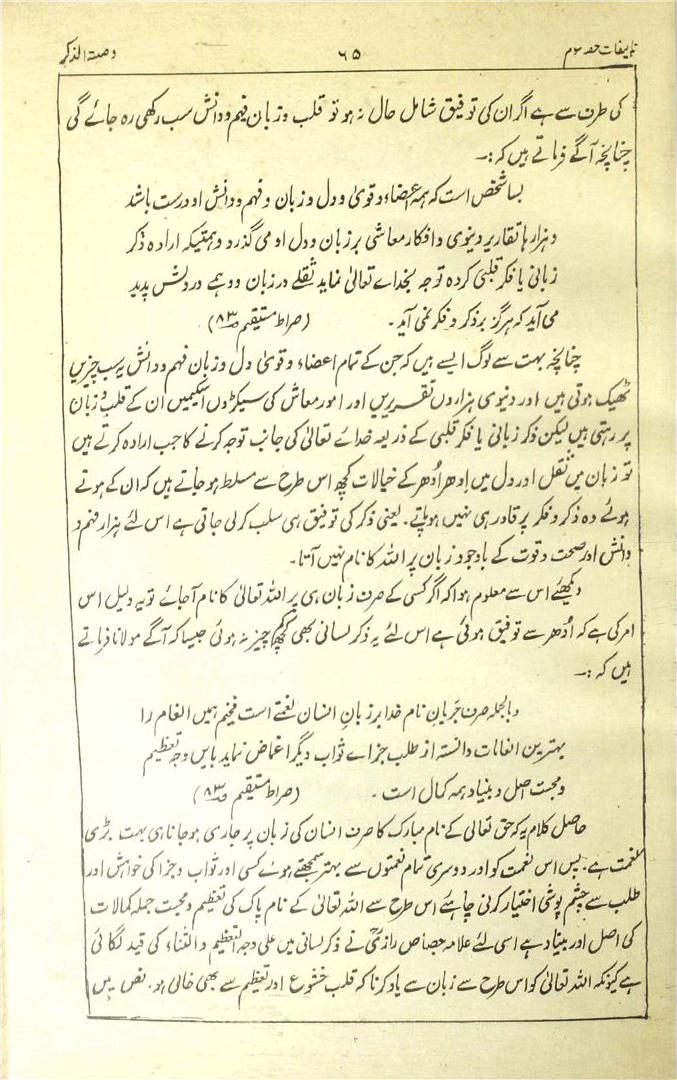 تالیفات حصہ سوم ۶۵ وصیۃ الذکر
کی طرف سے ہے اگر ان کی توفیق شامل حال نہ ہو تو قلب و زبان فہم و دانش سب رکھی رہ جائے گی
چنانچہ آگے فرماتے ہیں کہ :۔
بسا شخص است کہ ہمہ اعضاء و قویٰ و دل و زبان و فہم و دانش او درست باشد
و ہزارہا تقاریر دینوی و افکار معاشی بر زبان و دل او می گذرد و ہمتیکہ ارادہ ذکر
زبانی یا فکر قلبی کردہ توجہ بخداے تعالیٰ نماید ثقلے در زبان و وہمے در دلش پدید
می آید کہ ہرگز بر ذکر و فکر نمی آید ۔ (صراط مستقیم ص۸۳)
چنانچہ بہت سے لوگ ایسے ہیں کہ جن کے تمام اعضاء و قویٰ دل و زبان فہم و دانش یہ سب چیزیں
ٹھیک ہوتی ہیں اور دنیوی ہزاروں تقریریں اور امور معاش کی سیکڑوں اسکیمیں ان کے قلب و زبان
پر رہتی ہیں لیکن ذکر زبانی یا فکر قلبی کے ذریعہ خدائے تعالیٰ کی جانب توجہ کرنے کا جب ارادہ کرتے ہیں
تو زبان میں ثقل اور دل میں اِدھر اُدھر کے خیالات کچھ اس طرح سے مسلط ہو جاتے ہیں کہ ان کے ہوتے
ہوئے وہ ذکر و فکر پر قادر ہی نہیں ہو پاتے ۔ یعنی ذکر کی توفیق ہی سلب کر لی جاتی ہے اس لئے ہزار فہم و
دانش اور صحت و قوت کے باوجود زبان پر اللہ کا نام نہیں آتا ۔
دیکھئے اس سے معلوم ہوا کہ اگر کسی کے صرف زبان ہی پر اللہ تعالیٰ کا نام آجائے تو یہ دلیل اس
امر کی ہے کہ اُدھر سے توفیق ہوئی ہے اس لئے یہ ذکر لسانی بھی کچھ کم چیز نہ ہوئی جیسا کہ آگے مولانا فرماتے
ہیں کہ :۔
و بالجملہ صرف جَریان نام خدا بر زبانِ انسان نعمتے است فخیم ہمیں انعام را
بہترین انعامات دانستہ از طلب جزاے ثواب دیگر اغماض نماید بایں وجہ تعظیم
و محبت اصل و بنیاد ہمہ کمال است ۔ (صراط مستقیم ص۸۳)
حاصل کلام یہ کہ حق تعالیٰ کے نام مبارک کا صرف انسان کی زبان پر جاری ہو جانا ہی بہت بڑی
نعمت ہے ۔ پس اس نعمت کو اور دوسری تمام نعمتوں سے بہتر سمجھتے ہوئے کسی اور ثواب و جزا کی خواہش اور
طلب سے چشم پوشی اختیار کرنی چاہئے اس طرح سے اللہ تعالیٰ کے نام پاک کی تعظیم و محبت جملہ کمالات
کی اصل اور بنیاد ہے اسی لئے علامہ جصاص رازیؒ نے ذکر لسانی میں علی وجہ التعظیم و الثناء کی قید لگائی
ہے کیونکہ اللہ تعالیٰ کو اس طرح سے زبان سے یاد کرنا کہ قلب خشوع اور تعظیم سے بھی خالی ہو ۔ نص میں